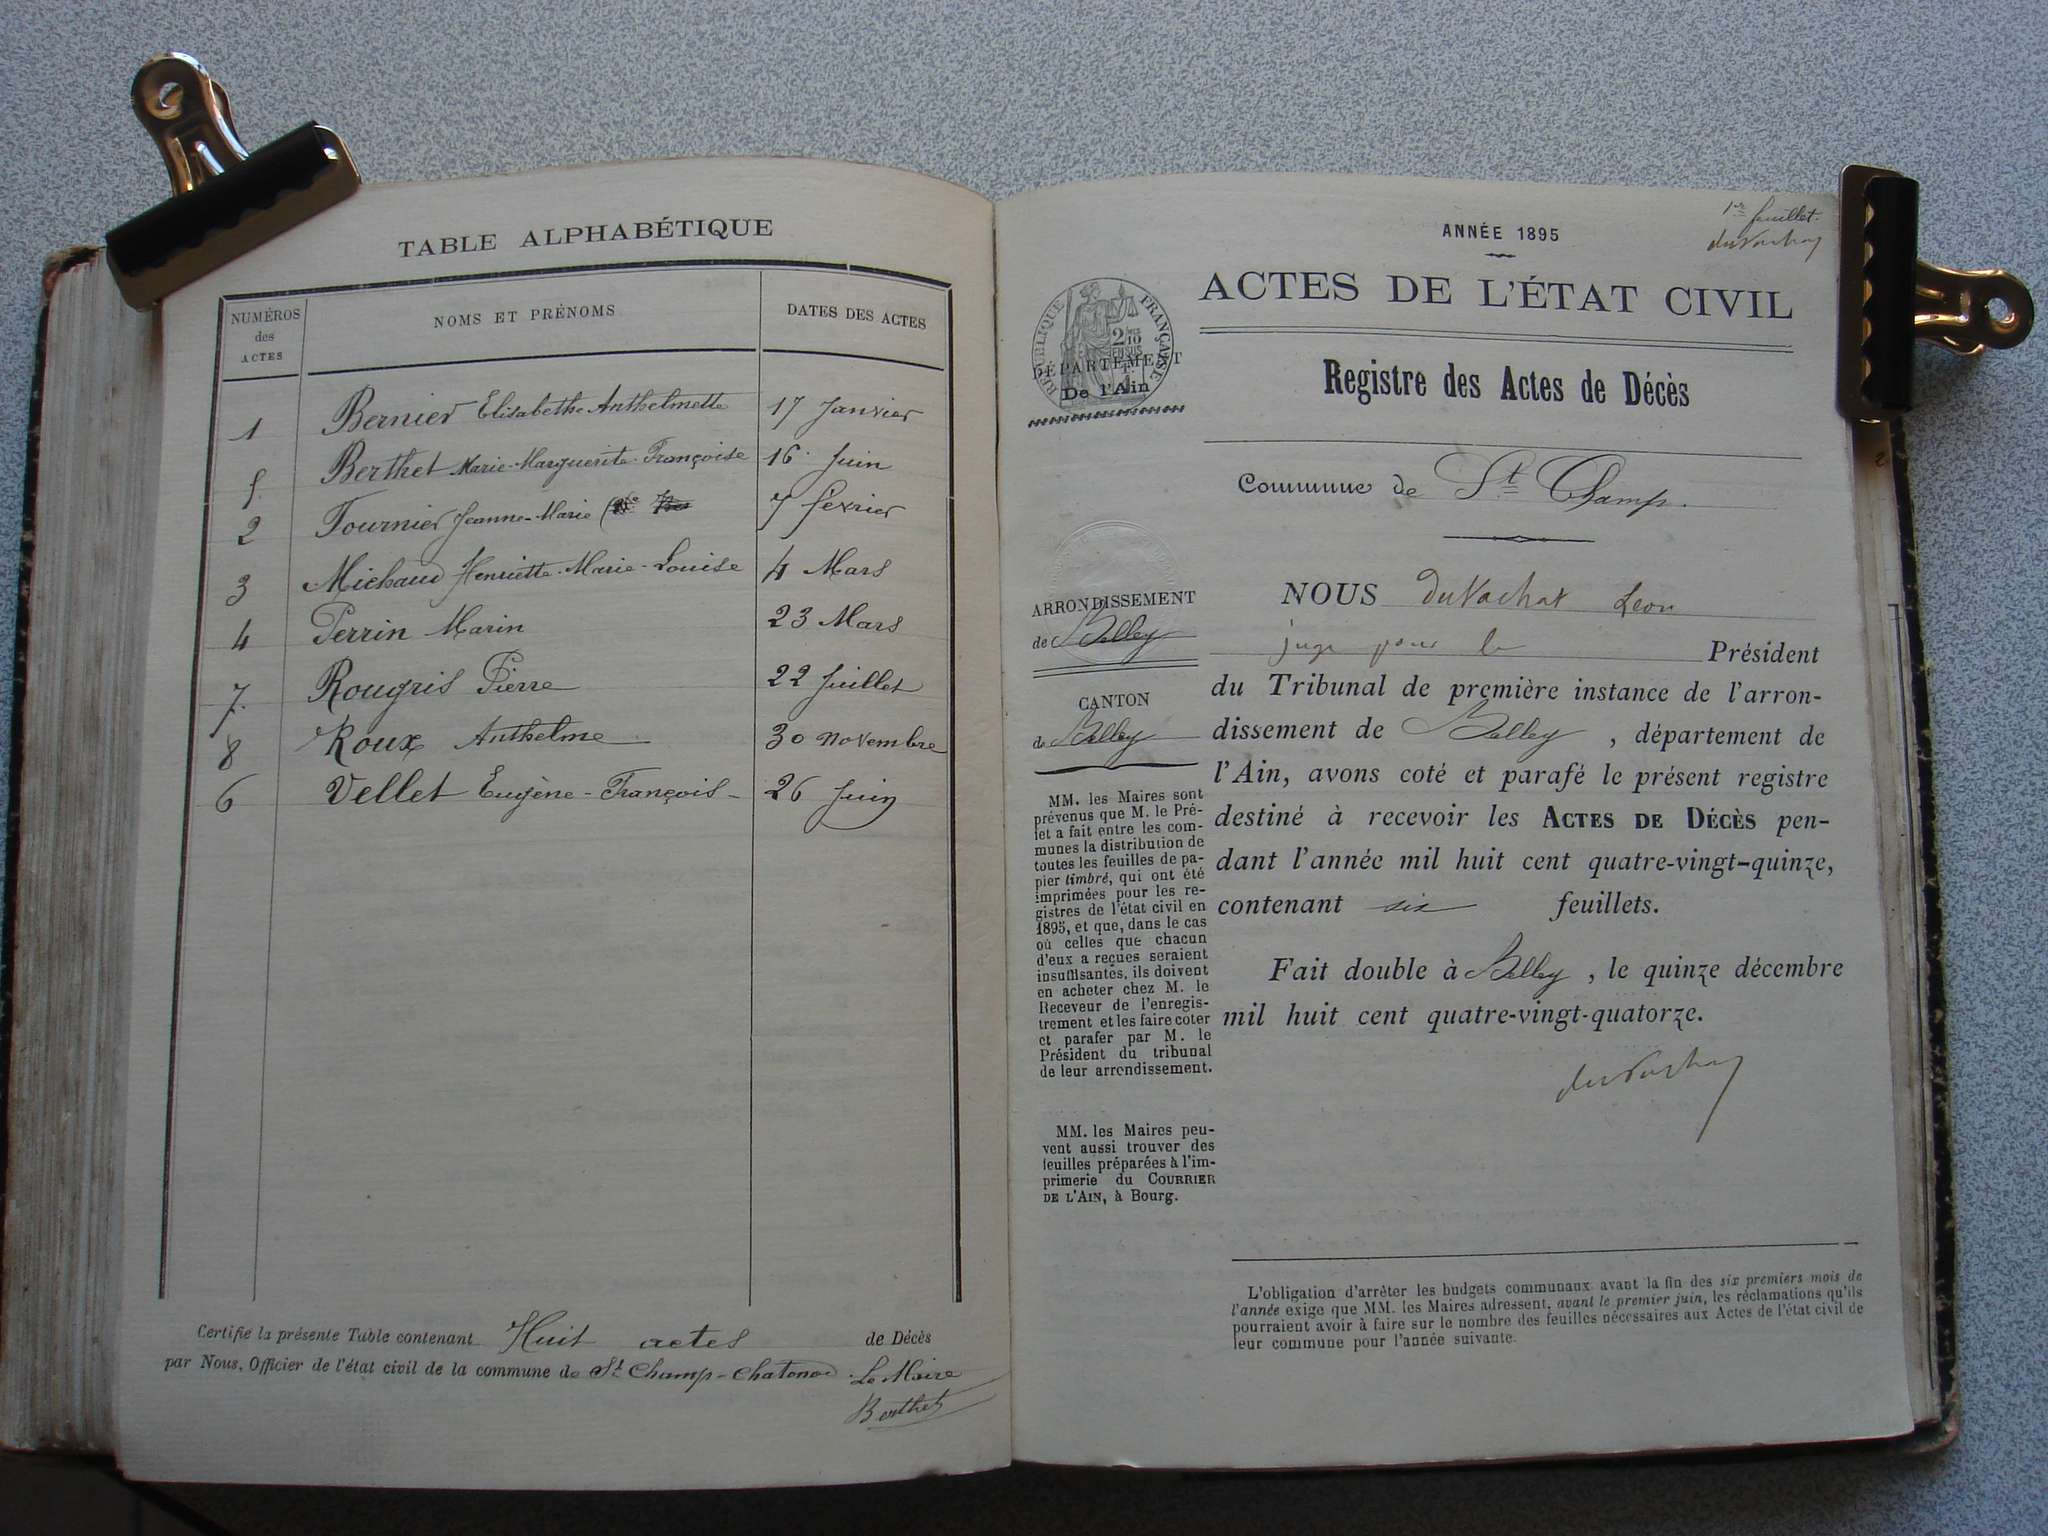 TABLE ALPHABÉTIQUE
NUMÉROS des ACTES
NOMS ET PRÉNOMS
DATES DES ACTES
1 Bernier Elisabethe Anthelmette 17 Janvier
5 Berthet Marie-Marguerite-Françoise 16 Juin
2 Fournier Jeanne-Marie 7 février
3 Michaud Henriette-Marie-Louise 4 Mars
4 Perrin Marin 23 Mars
7 Rougris Pierre 22 Juillet
8 Roux Anthelme 30 novembre
6 Vellet Eugène-François 26 Juin
Certifie la présente Table contenant Huit actes de Décès
par Nous, Officier de l'état civil de la commune de St Champ-Chatonod Le Maire
Berthet
1er feuillet.
duVachat
ANNÉE 1895
ACTES DE L'ÉTAT CIVIL
RÉPUBLIQUE FRANÇAISE
DÉPARTEMENT
De l'Ain
Registre des Actes de Décès
Commune de St Champ.
ARRONDISSEMENT
de Belley
CANTON
de Belley
MM. les Maires sont
prévenus que M. le Pré-
fet a fait entre les com-
munes la distribution de
toutes les feuilles de pa-
pier timbré, qui ont été
imprimées pour les re-
gistres de l'état civil en
1895, et que, dans le cas
où celles que chacun
d'eux a reçues seraient
insuffisantes, ils doivent
en acheter chez M. le
Receveur de l'enregis-
trement et les faire coter
et parafer par M. le
Président du tribunal
de leur arrondissement.
MM. les Maires peu-
vent aussi trouver des
feuilles préparées à l'im-
primerie du COURRIER
DE L'AIN, à Bourg.
NOUS duVachat Leon
juge pour le Président
du Tribunal de première instance de l'arron-
dissement de Belley, département de
l'Ain, avons coté et parafé le présent registre
destiné à recevoir les ACTES DE DÉCÈS pen-
dant l'année mil huit cent quatre-vingt-quinze,
contenant six feuillets.
Fait double à Belley, le quinze décembre
mil huit cent quatre-vingt-quatorze.
duVachat
L'obligation d'arrêter les budgets communaux avant la fin des six premiers mois de
l'année exige que MM. les Maires adressent, avant le premier juin, les réclamations qu'ils
pourraient avoir à faire sur le nombre des feuilles nécessaires aux Actes de l'état civil de
leur commune pour l'année suivante.